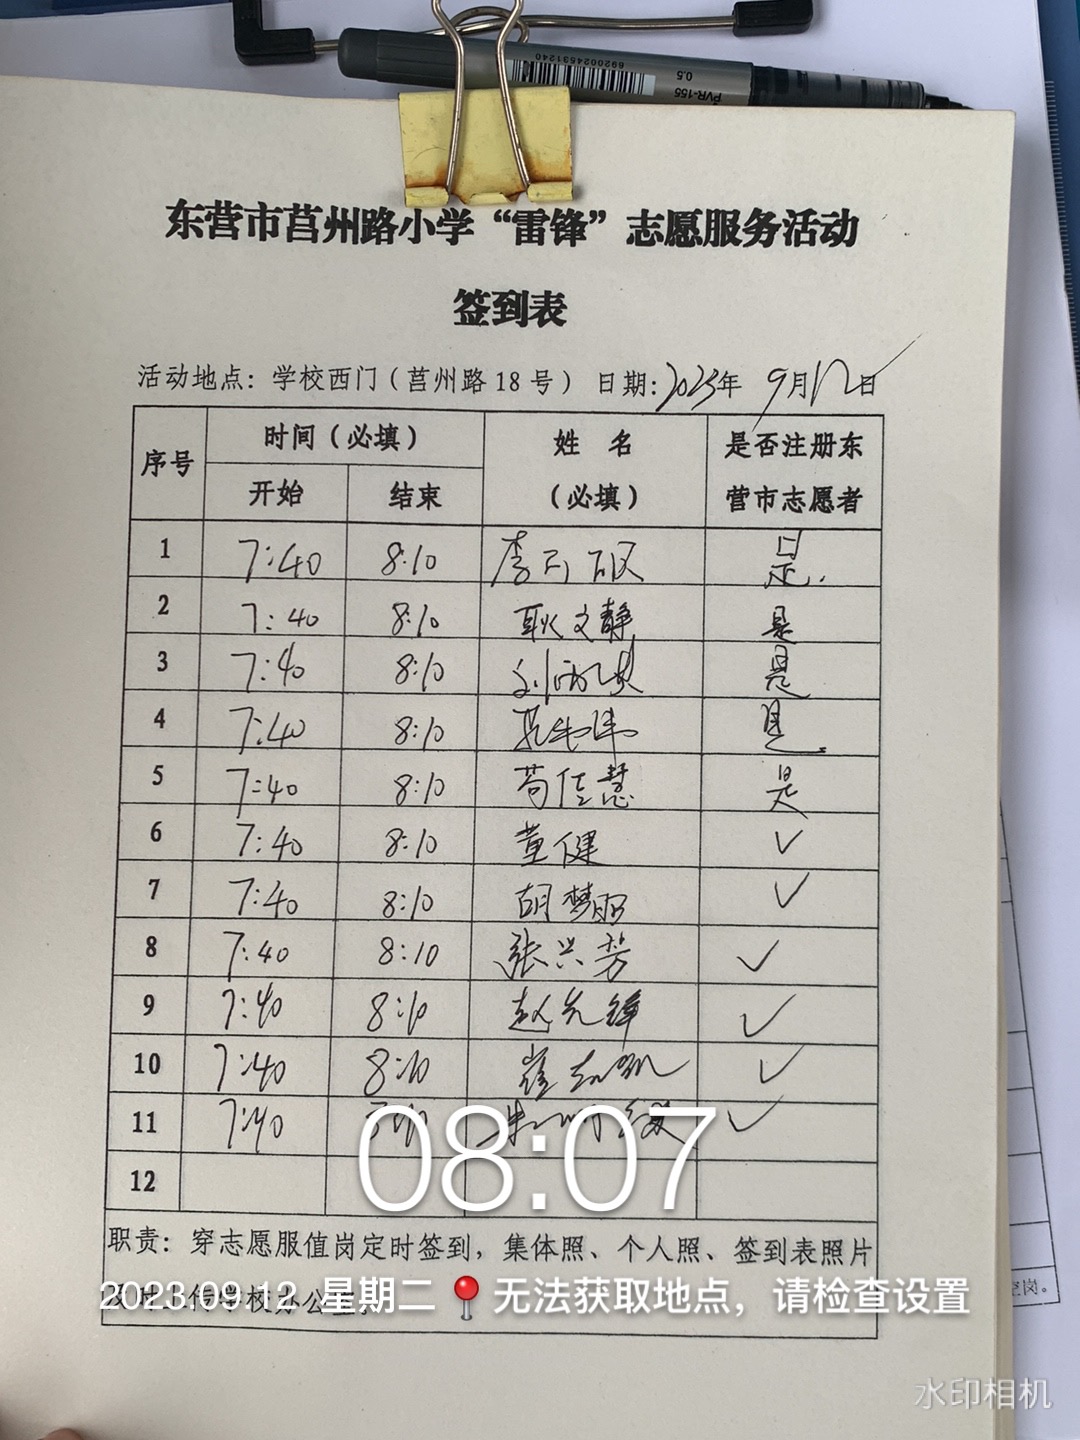 6920024531240
PVR-155
0.5
东营市莒州路小学“雷锋”志愿服务活动
签到表
活动地点：学校西门（莒州路18号） 日期：2023年 9月12日
序号 时间（必填） 姓 名（必填） 是否注册东营市志愿者
开始 结束
1 7:40 8:10 李 是.
2 7:40 8:10 耿文静 是
3 7:40 8:10 刘 是
4 7:40 8:10 是
5 7:40 8:10 苟佳慧 是
6 7:40 8:10 董健 ✓
7 7:40 8:10 胡梦 ✓
8 7:40 8:10 张兴芳 ✓
9 7:40 8:10 赵先锋 ✓
10 7:40 8:10 崔 ✓
11 7:40 朱 ✓
12
08:07
职责：穿志愿服值岗定时签到，集体照、个人照、签到表照片
传学校办公
2023.09.12 星期二 无法获取地点，请检查设置
空岗。
水印相机